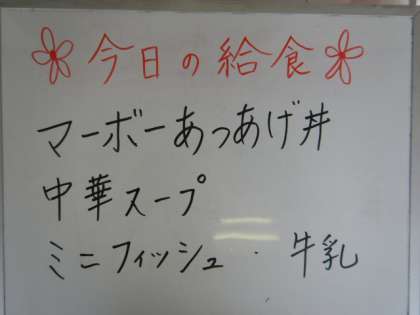 今日の給食
マーボーあつあげ丼
中華スープ
ミニフィッシュ・牛乳